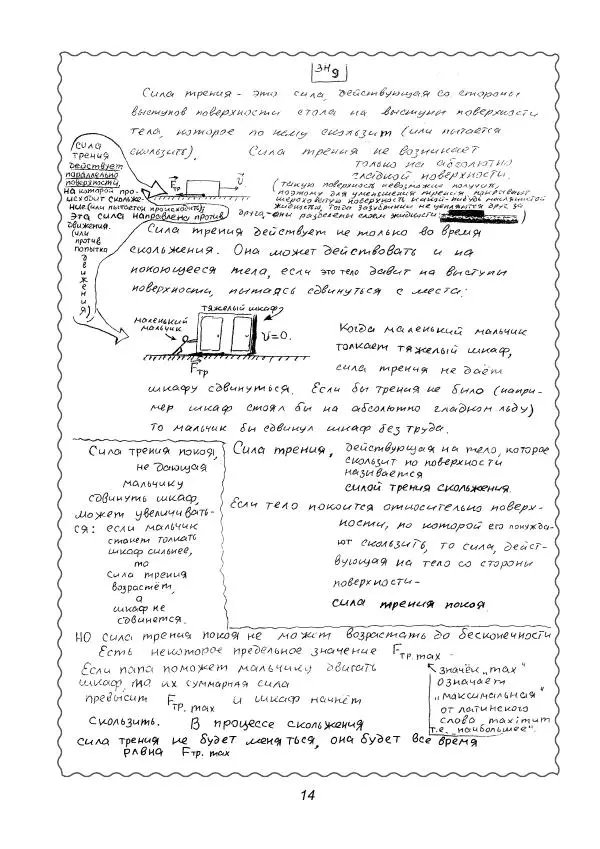 ЗН9
Сила трения - это сила, действующая со стороны
выступов поверхности стола на выступы поверхности
тела, которое по нему скользит (или пытается
скользить). Сила трения не возникает
только на абсолютно
гладкой поверхности.
(такую поверхность невозможно получить,
поэтому для уменьшения трения покрывают
шероховатую поверхность какой-нибудь маслянистой
жидкостью, тогда зазубринки не цепляются друг за
друга - они разделены слоем жидкости)
Сила
трения
действует
параллельно
поверхности,
на которой про-
исходит скольже-
ние (или пытается происходить);
Эта сила направлена против
движения.
(или
против
попытки
движения)
Fтр
v
Сила трения действует не только во время
скольжения. Она может действовать и на
покоющееся тела, если это тело давит на выступы
поверхности, пытаясь сдвинуться с места:
тяжелый шкаф
маленький
мальчик
v=0.
Fтр
Когда маленький мальчик
толкает тяжелый шкаф,
сила трения не даёт
шкафу сдвинуться. Если бы трения не было (напри-
мер шкаф стоял бы на абсолютно гладком льду)
то мальчик бы сдвинул шкаф без труда.
Сила трения покоя,
не дающая
мальчику
сдвинуть шкаф,
может увеличивать-
ся: если мальчик
станет толкать
шкаф сильнее,
то
сила трения
возрастёт,
а
шкаф не
сдвинется.
Сила трения, действующая на тело, которое
скользит по поверхности
называется
силой трения скольжения.
Если тело покоится относительно поверх-
ности, по которой его понужда-
ют скользить, то сила, дейст-
вующая на тело со стороны
поверхности-
сила трения покоя
НО сила трения покоя не может возрастать до бесконечности
Есть некоторое предельное значение Fтр. max -
Если папа поможет мальчику двигать
шкаф, то их суммарная сила
превысит Fтр. max и шкаф начнёт
скользить. В процессе скольжения
сила трения не будет меняться, она будет все время
равна Fтр. max
значёк „max"
означает
„максимальная"
от латинского
слова maximum
т.е. „наибольшее".
14